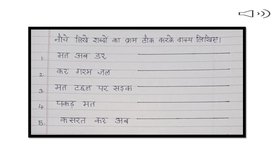 नीचे लिखे शब्दों का क्रम ठीक करके वाक्य लिखिए।
1. मत अब डर
2. कर गरम जल
3. मत टहल पर सड़क
4. पकड़ मत
5. कसरत कर अब